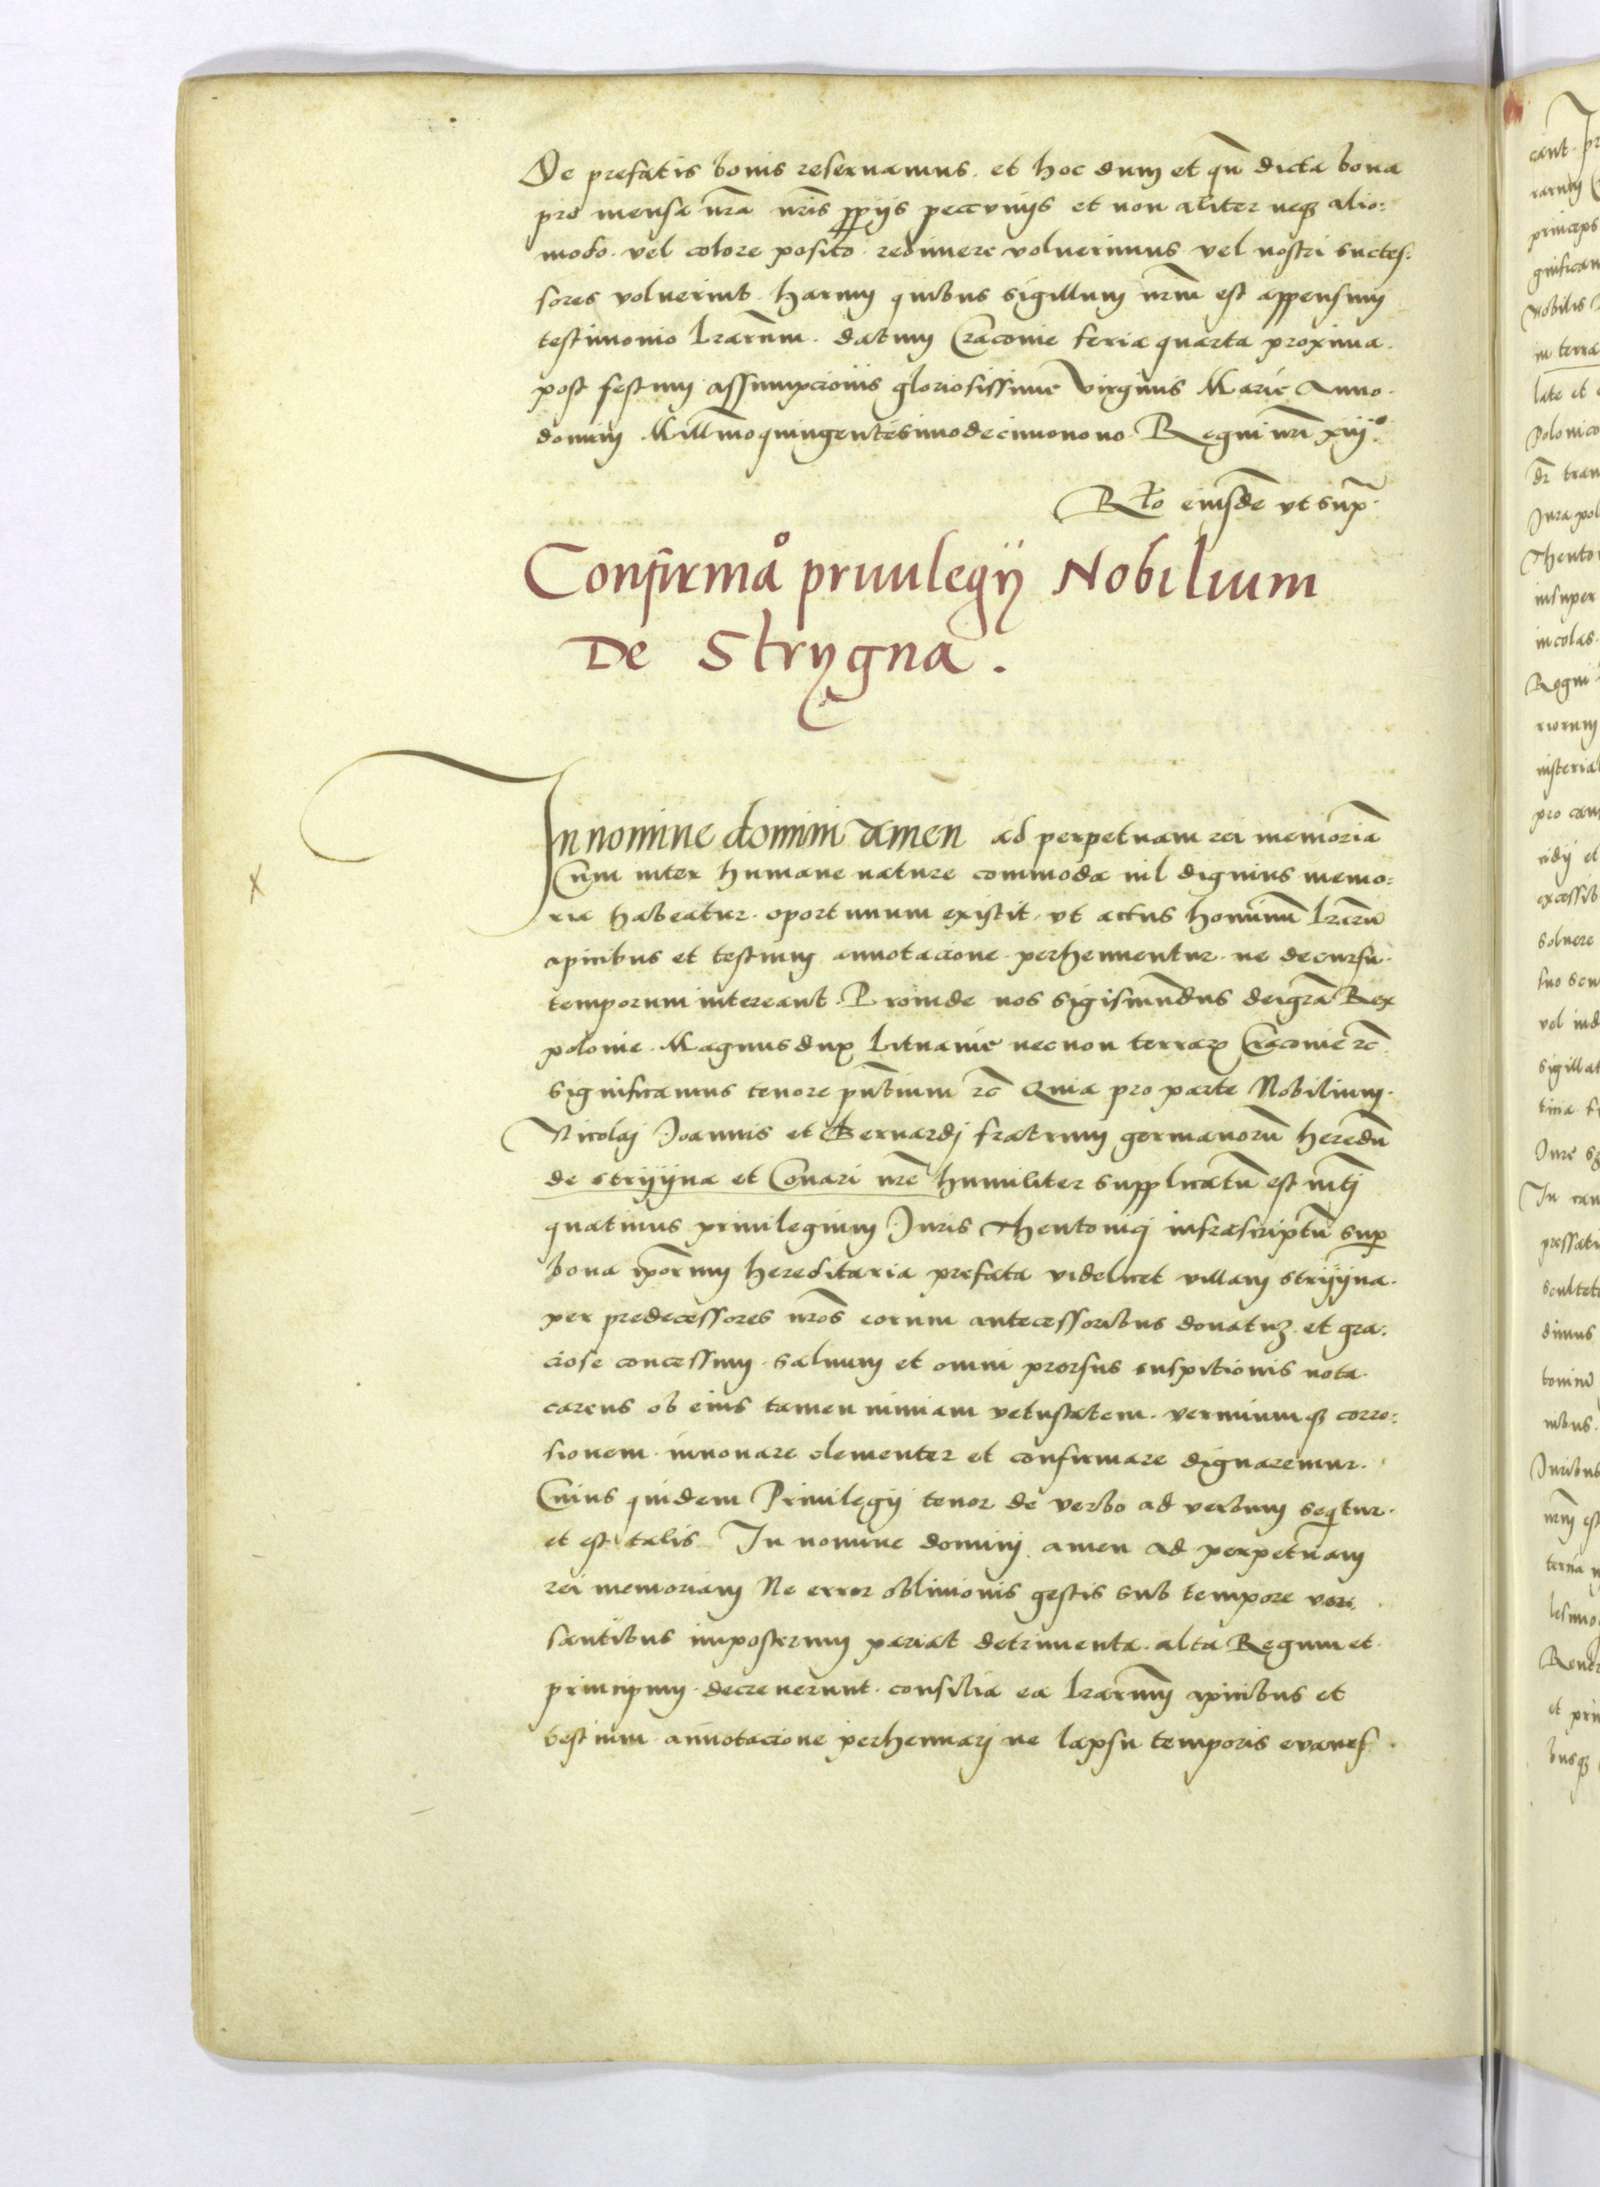 De prefatis bonis reseruamus. et hoc dum et qn̄ dicta bona
pro mensa nr̄a nr̄is ꝓpijs peccunijs et non aliter neqꝫ alio:
modo. vel colore posito. redimere voluerimus vel nostri succes:
sores voluerint. Harum quibus sigillum nr̄m est appensum
testimonio lr̄arum. datum Cracouie feria quarta proxima.
post festum assumpcionis gloriosissime virginis Marie Anno.
domini Millīmoquingentesimodecimonono Regni nr̄i xiij°
Rl̄o eiusdē vt sup̄.
Confirmaͦ priuilegij Nobilium
De Strygna.
In nomine domini amen ad perpetuam rei memoriā
Cum inter humane nature commoda nil dignius memo:
ria habeatur. oportunum existit. vt actus hominū lr̄arū
apicibus et testium annotacione perhennentur. ne decursu.
temporum intereant. Proinde nos sigismūdus dei gr̄a Rex
polonie. Magnus dux Lituanie necnon terraꝝ Cracouie ꝛc̄
significamus tenore pn̄tium ꝛc̄ Quia pro parte Nobilium.
Nicolaj Joannis et Bernardj fratrum germanorū heredū
de strÿÿna et Conari nr̄e humiliter supplicatū est mtj
quatinus priuilegium Juris Thentonicj infrascriptū suꝑ
bona ip̄orum hereditaria prefata videlicet villam strÿÿna.
per predecessores nr̄os eorum antecessoribus donatuꝫ. et gra:
ciose concessum. saluum et omni prorsus suspitionis nota.
carens ob eius tamen nimiam vetustatem. vermiumqꝫ corro:
sionem. innouare clementer et confirmare dignaremur.
Cuius quidem Priuilegij tenor de verbo ad verbum seqͥtur.
et est talis In nomine dominj amen ad perpetuam
rei memoriam Ne error obliuionis gestis sub tempore ver:
santibus imposterum pariat detrimenta. alta Regum et.
principum. decreuerunt. consilia ea lr̄arum apicibus et
testium annotacione perhennarj ne lapsu temporis euanes